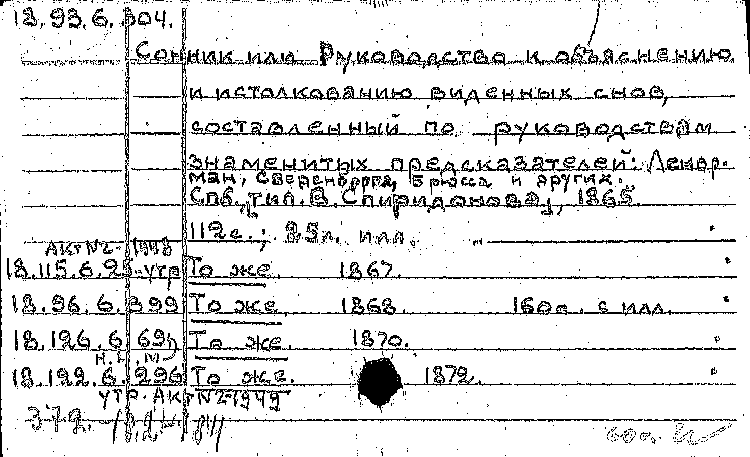 18.93.6.304.
Сонник или Руководство к объяснению
и истолкованию виденных снов,
составленный по руководствам
знаменитых предсказателей: Ленор-
ман, Сведенборга, Брюса и других.
Спб. тип. В. Спиридонова, 1865.
112 с.; 25 л. илл.
Акт №2-1948
18.115.6.25-утр То же. 1867.
18.96.6.399 То же. 1868. 160 с. с илл.
18.126.6.69 То же. 1870.
18.122.6.296 То же. 1872.
утр. Акт №2-1949
372.